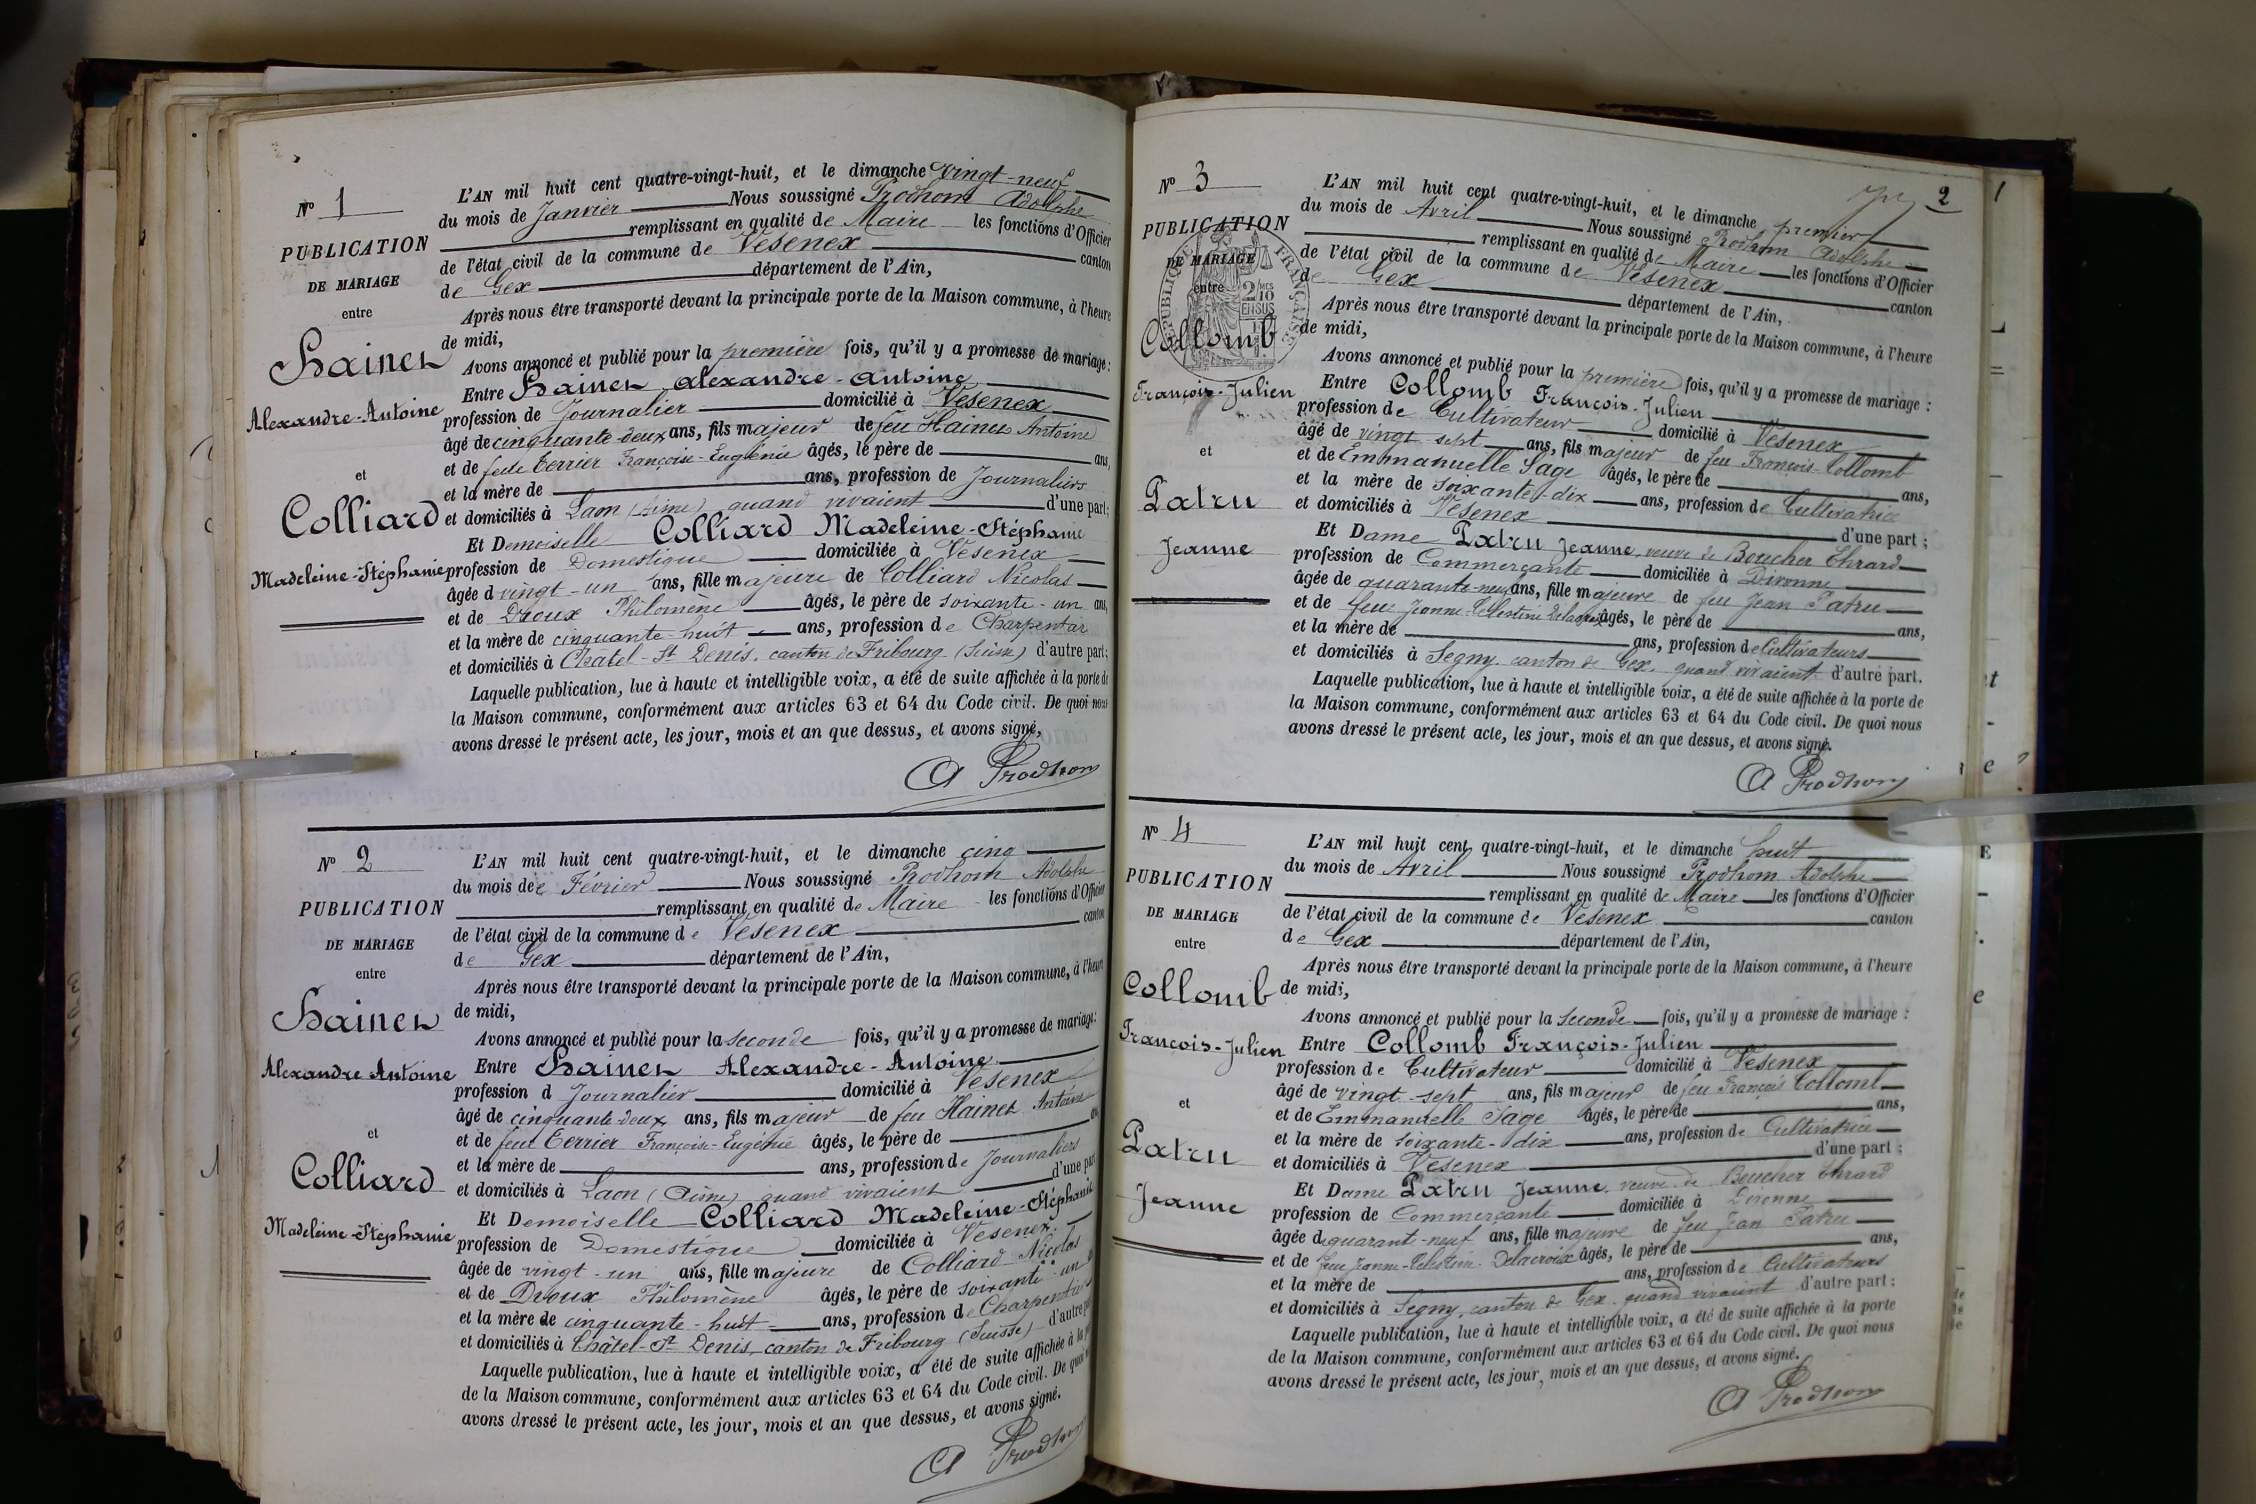 Nº 1
PUBLICATION
DE MARIAGE
entre
Hainez
Alexandre-Antoine
et
Colliard
Madeleine-Stéphanie
L'AN mil huit cent quatre-vingt-huit, et le dimanche vingt-neuf
du mois de Janvier Nous soussigné Prodhom Adolphe
remplissant en qualité de Maire les fonctions d'Officier
de l'état civil de la commune de Vesenex canton
de Gex département de l'Ain,
Après nous être transporté devant la principale porte de la Maison commune, à l'heure
de midi,
Avons annoncé et publié pour la première fois, qu'il y a promesse de mariage :
Entre Hainez Alexandre-Antoine
profession de Journalier domicilié à Vesenex
âgé de cinquante-deux ans, fils majeur de feu Hainez Antoine
et de feue Terrier Françoise-Eugénie âgés, le père de ans,
et la mère de ans, profession de Journaliers
et domiciliés à Laon (Aisne) quand vivaient d'une part;
Et Demoiselle Colliard Madeleine-Stéphanie
profession de Domestique domiciliée à Vesenex
âgée d vingt-un ans, fille majeure de Colliard Nicolas
et de Droux Philomène âgés, le père de soixante-un ans,
et la mère de cinquante-huit ans, profession de Charpentier
et domiciliés à Châtel-St Denis, canton de Fribourg (Suisse) d'autre part;
Laquelle publication, lue à haute et intelligible voix, a été de suite affichée à la porte de
la Maison commune, conformément aux articles 63 et 64 du Code civil. De quoi nous
avons dressé le présent acte, les jour, mois et an que dessus, et avons signé,
A Prodhom
Nº 2
PUBLICATION
DE MARIAGE
entre
Hainez
Alexandre Antoine
et
Colliard
Madeleine-Stéphanie
L'AN mil huit cent quatre-vingt-huit, et le dimanche cinq
du mois de Février Nous soussigné Prodhom Adolphe
remplissant en qualité de Maire les fonctions d'Officier
de l'état civil de la commune de Vesenex canton
de Gex département de l'Ain,
Après nous être transporté devant la principale porte de la Maison commune, à l'heure
de midi,
Avons annoncé et publié pour la seconde fois, qu'il y a promesse de mariage :
Entre Hainez Alexandre-Antoine
profession d Journalier domicilié à Vesenex
âgé de cinquante-deux ans, fils majeur de feu Hainez Antoine
et de feue Terrier Françoise-Eugénie âgés, le père de ans
et la mère de ans, profession de Journaliers
et domiciliés à Laon (Aisne) quand vivaient d'une part
Et Demoiselle Colliard Madeleine-Stéphanie
profession de Domestique domiciliée à Vesenex
âgée de vingt-un ans, fille majeure de Colliard Nicolas
et de Droux Philomène âgés, le père de soixante-un
et la mère de cinquante-huit ans, profession de Charpentier
et domiciliés à Châtel-St Denis, canton de Fribourg (Suisse) d'autre
Laquelle publication, lue à haute et intelligible voix, a été de suite affichée à la
de la Maison commune, conformément aux articles 63 et 64 du Code civil. De quoi
avons dressé le présent acte, les jour, mois et an que dessus, et avons signé.
A Prodhom
2
Nº 3
PUBLICATION
DE MARIAGE
entre
Collomb
François-Julien
et
Patru
Jeanne
RÉPUBLIQUE FRANÇAISE
2/10
EN SUS
L'AN mil huit cent quatre-vingt-huit, et le dimanche premier
du mois de Avril Nous soussigné Prodhom Adolphe
remplissant en qualité de Maire les fonctions d'Officier
de l'état civil de la commune de Vesenex canton
de Gex département de l'Ain,
Après nous être transporté devant la principale porte de la Maison commune, à l'heure
de midi,
Avons annoncé et publié pour la première fois, qu'il y a promesse de mariage :
Entre Collomb François-Julien
profession de Cultivateur domicilié à Vesenex
âgé de vingt-sept ans, fils majeur de feu François Collomb
et de Emmanuelle Sage âgés, le père de ans,
et la mère de soixante-dix ans, profession de Cultivatrice
et domiciliés à Vesenex d'une part ;
Et Dame Patru Jeanne, veuve de Boucher Ehrard
profession de Commerçante domiciliée à Divonne
âgée de quarante-neuf ans, fille majeure de feu Jean Patru
et de feue Jeanne-Célestine Delacroix âgés, le père de ans,
et la mère de ans, profession de Cultivateurs
et domiciliés à Segny, canton de Gex, quand vivaient d'autre part.
Laquelle publication, lue à haute et intelligible voix, a été de suite affichée à la porte de
la Maison commune, conformément aux articles 63 et 64 du Code civil. De quoi nous
avons dressé le présent acte, les jour, mois et an que dessus, et avons signé.
A Prodhom
Nº 4
PUBLICATION
DE MARIAGE
entre
Collomb
François-Julien
et
Patru
Jeanne
L'AN mil huit cent quatre-vingt-huit, et le dimanche huit
du mois de Avril Nous soussigné Prodhom Adolphe
remplissant en qualité de Maire les fonctions d'Officier
de l'état civil de la commune de Vesenex canton
de Gex département de l'Ain,
Après nous être transporté devant la principale porte de la Maison commune, à l'heure
de midi,
Avons annoncé et publié pour la seconde fois, qu'il y a promesse de mariage :
Entre Collomb François-Julien
profession de Cultivateur domicilié à Vesenex
âgé de vingt-sept ans, fils majeur de feu François Collomb
et de Emmanuelle Sage âgés, le père de ans,
et la mère de soixante-dix ans, profession de Cultivatrice
et domiciliés à Vesenex d'une part ;
Et Dame Patru Jeanne, veuve de Boucher Ehrard
profession de Commerçante domiciliée à Divonne
âgée d quarante-neuf ans, fille majeure de feu Jean Patru
et de feue Jeanne-Célestine Delacroix âgés, le père de ans,
et la mère de ans, profession de Cultivateurs
et domiciliés à Segny, canton de Gex, quand vivaient d'autre part :
Laquelle publication, lue à haute et intelligible voix, a été de suite affichée à la porte
de la Maison commune, conformément aux articles 63 et 64 du Code civil. De quoi nous
avons dressé le présent acte, les jour, mois et an que dessus, et avons signé.
A Prodhom